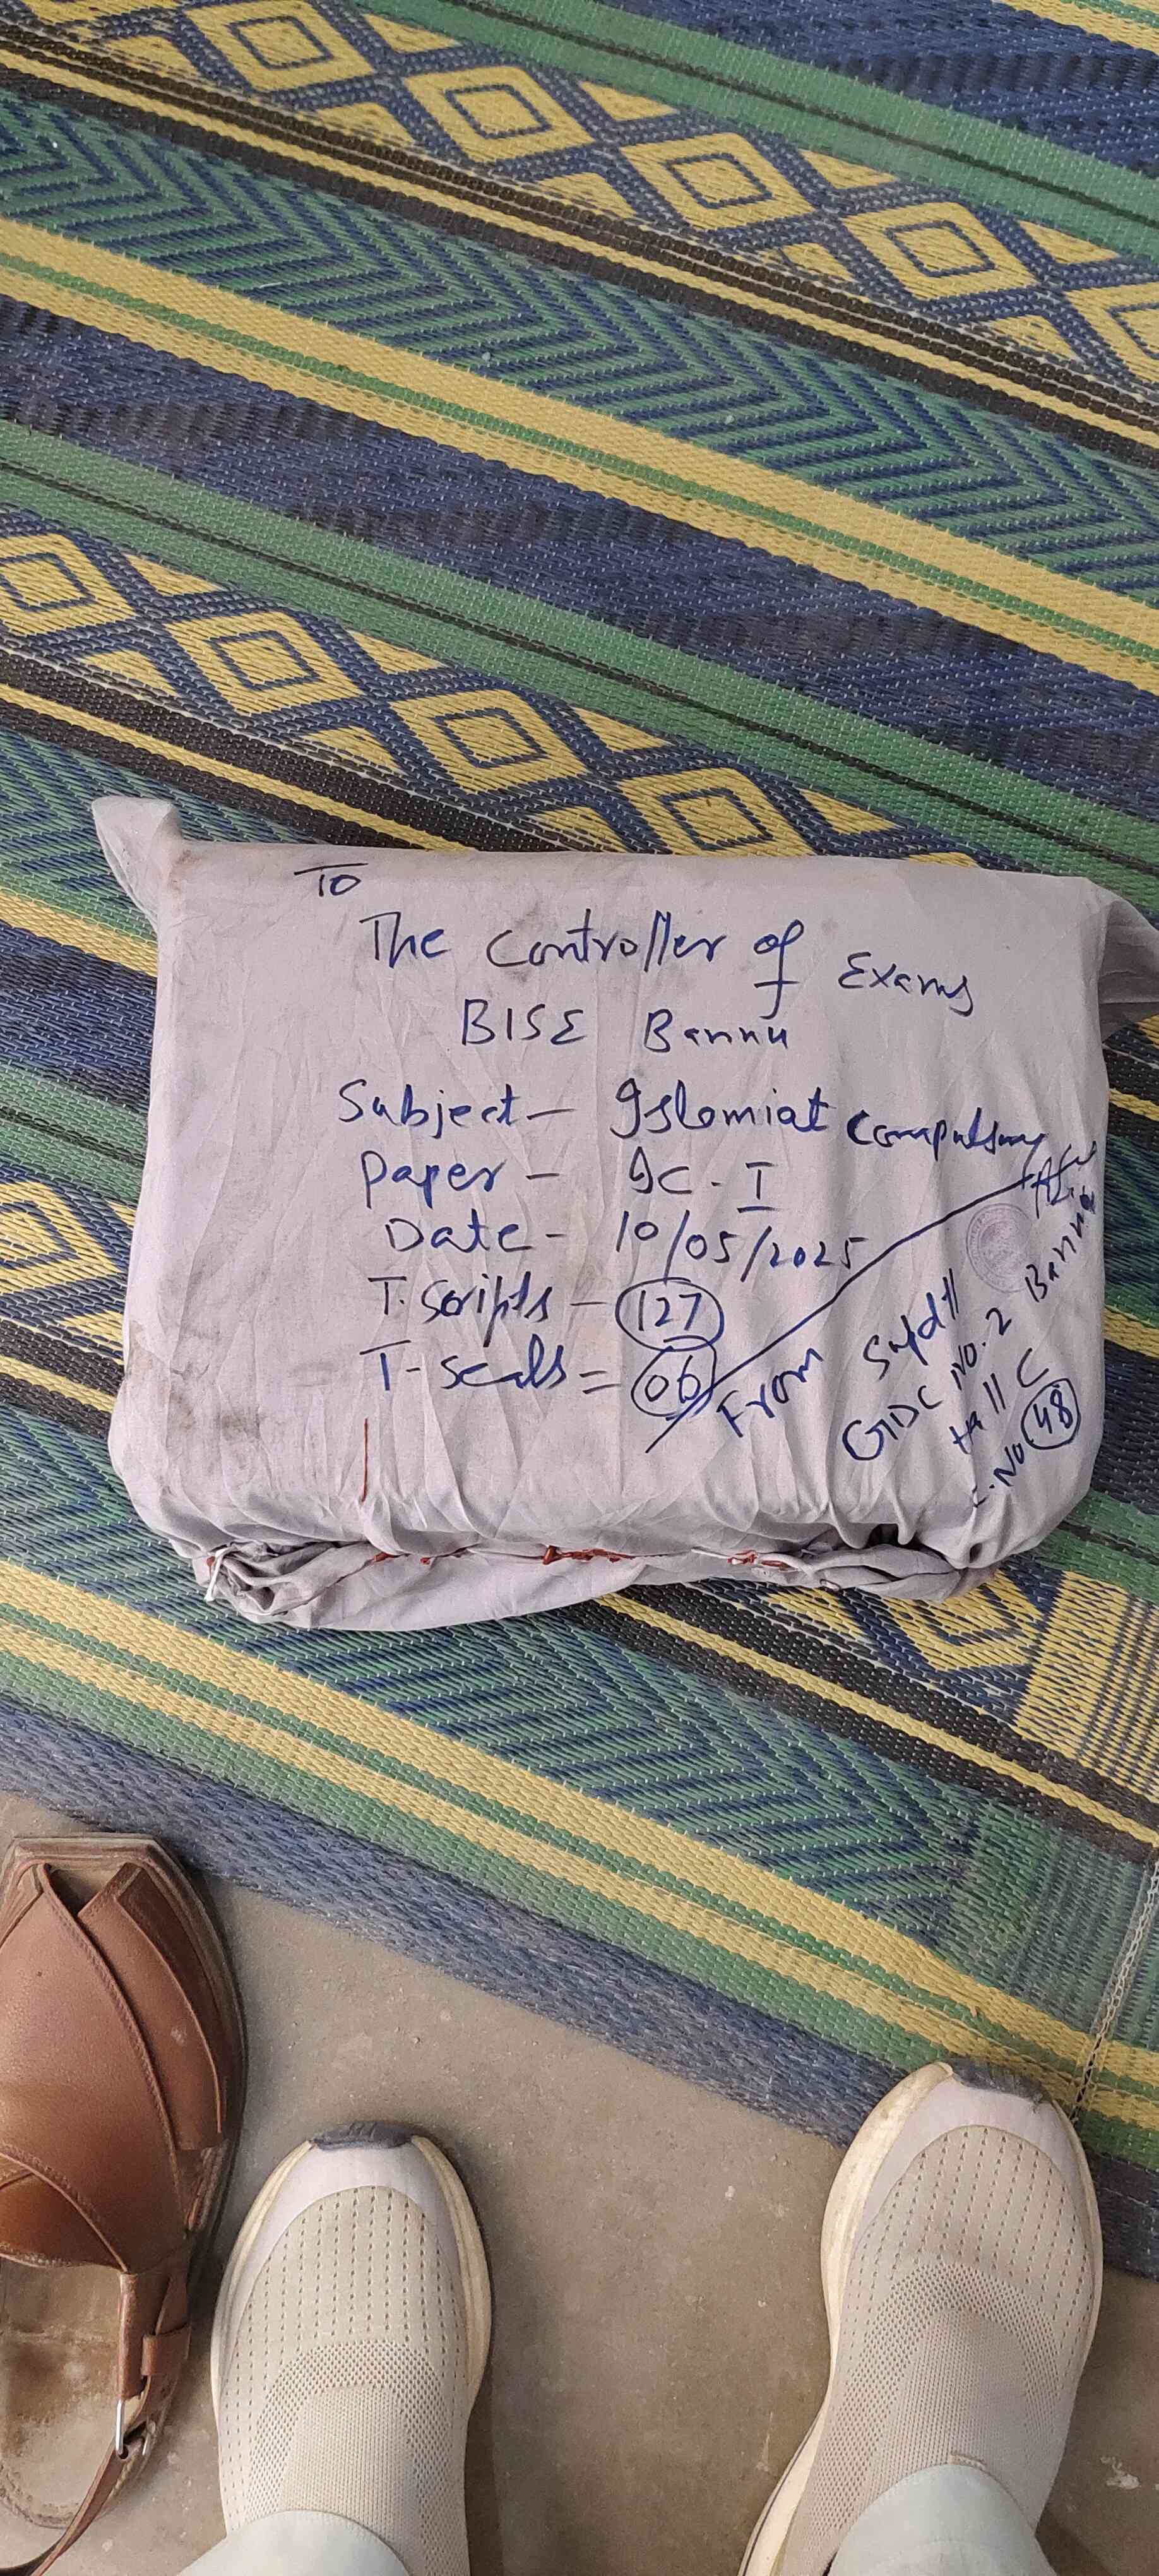 To
The Controller of Exams
BISE Bannu
Subject - Islamiat Compulsory
Paper - IC - I
Date - 10/05/2025
T. Scripts - 127
T - Seals = 06
From
Supdtt
GDC No. 2 Bannu
Hall C
No. 48